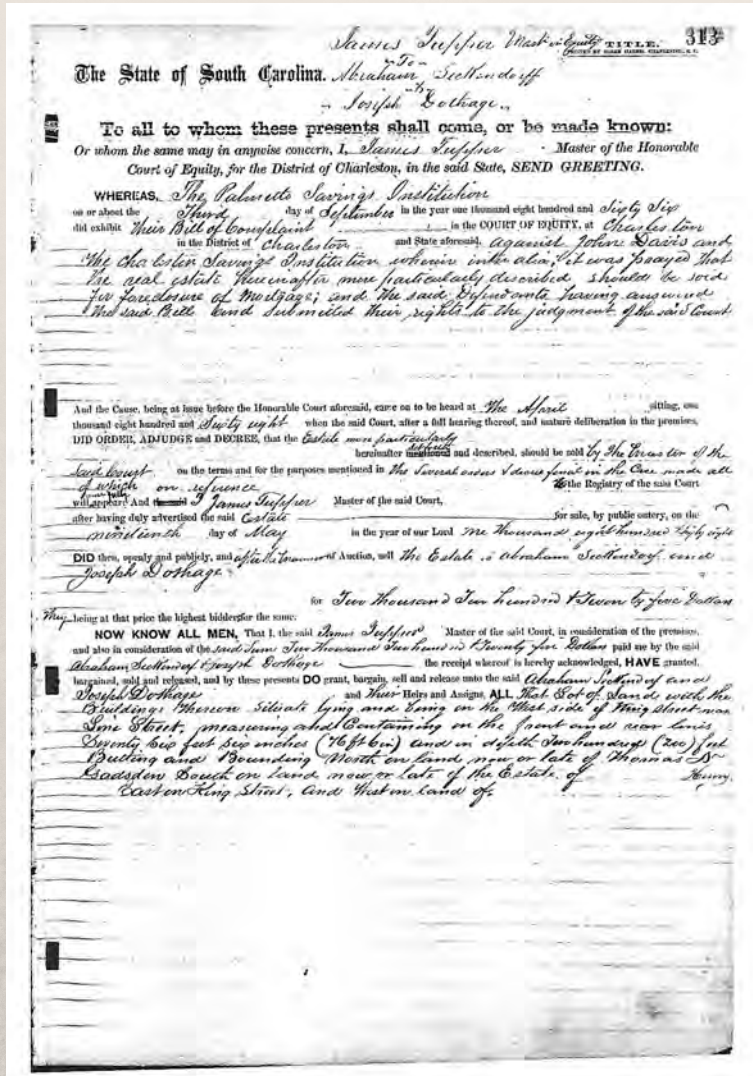 James Tupper Mast in Equity TITLE. 313
"To"
The State of South Carolina. Abraham Seckendorff
"&"
Joseph Dothage
To all to whom these presents shall come, or be made known:
Or whom the same may in anywise concern, I, James Tupper Master of the Honorable
Court of Equity, for the District of Charleston, in the said State, SEND GREETING.
WHEREAS, The Palmetto Savings Institution
on or about the Third day of September in the year one thousand eight hundred and Sixty Six
did exhibit their Bill of Complaint in the COURT OF EQUITY, at Charleston
in the District of Charleston and State aforesaid, against John Davis and
The Charleston Savings Institution wherein inter alia, it was prayed that
the real estate hereinafter more particularly described should be sold
for foreclosure of Mortgage; and the said Defendants having answered
the said Bill and submitted their rights to the judgment of the said Court
And the Cause, being at issue before the Honorable Court aforesaid, came on to be heard at The April sitting, one
thousand eight hundred and Sixty eight when the said Court, after a full hearing thereof, and mature deliberation in the premises,
DID ORDER, ADJUDGE and DECREE, that the Estate more particularly
hereinafter mentioned and described, should be sold by the Master of the
said Court on the terms and for the purposes mentioned in the several orders & decree final in the Case made all
of which on reference to the Registry of the said Court
will more fully appear: And I James Tupper Master of the said Court,
after having duly advertised the said Estate for sale, by public outcry, on the
nineteenth day of May in the year of our Lord one thousand eight hundred & sixty eight
DID then, openly and publicly, and after the manner of Auction, sell the Estate to Abraham Seckendorf and
Joseph Dothage
for Two thousand Two hundred & Twenty five Dollars
They being at that price the highest bidders for the same.
NOW KNOW ALL MEN, That I, the said James Tupper Master of the said Court, in consideration of the premises,
and also in consideration of the said sum Two thousand Two hundred & Twenty five Dollars paid me by the said
Abraham Seckendorf & Joseph Dothage the receipt whereof is hereby acknowledged, HAVE granted,
bargained, sold and released, and by these presents DO grant, bargain, sell and release unto the said Abraham Seckendorf and
Joseph Dothage and their Heirs and Assigns, ALL That Lot of Land with the
Buildings thereon Situate lying and being on the West side of King Street near
Line Street, measuring and Containing on the front and rear lines
Seventy Six feet six inches (76 ft 6 in) and in depth Two hundred (200) feet
Butting and Bounding North on land now or late of Thomas N
Gadsden South on land now or late of the Estate of Henry
East on King Street, and West on land of